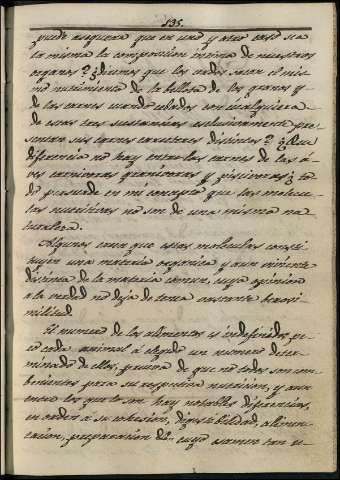 135.
puede asegurar que en uno y otro caso sea
la misma la composicion intima de nuestros
organos? ¿diremos que los cerdos sacan el mis-
mo nutrimento de la bellota de los granos y
de las carnes cuando cebados con cualquiera
de estas tres sustancias esclusivamente pre-
sentan sus carnes caracteres distintos? ¿Que
diferencia no hay entre las carnes de las á-
ves carnivoras granivoras y piscivoras? to-
do persuade en mi concepto que las molecu-
las nutritivas no son de una misma na-
turaleza.
Algunos creen que estas moleculas consti-
tuyen una materia organica y aun viviente
distinta de la materia comun, cuya opinion
a la verdad no deja de tener bastante verosi-
militud.
El numero de los alimentos es indefinido, pe-
ro cada animal á elegido un numero deter-
minado de ellos, prueba de que no todos son con-
benientes para su respectiva nutricion, y aun
entre los que lo son hay notables diferencias,
en orden á su cohesion, digestibilidad, alimen-
tacion, preparacion &. cuyo examen tan